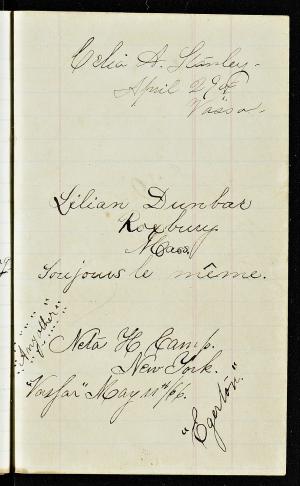 Celia A. Stanley.
April 29th
Vassar.
Lilian Dunbar
Roxbury
Mass.
Toujours le même.
Neta H. Camp.
New York.
"Vassar" May 11th/66.
"Egerton"